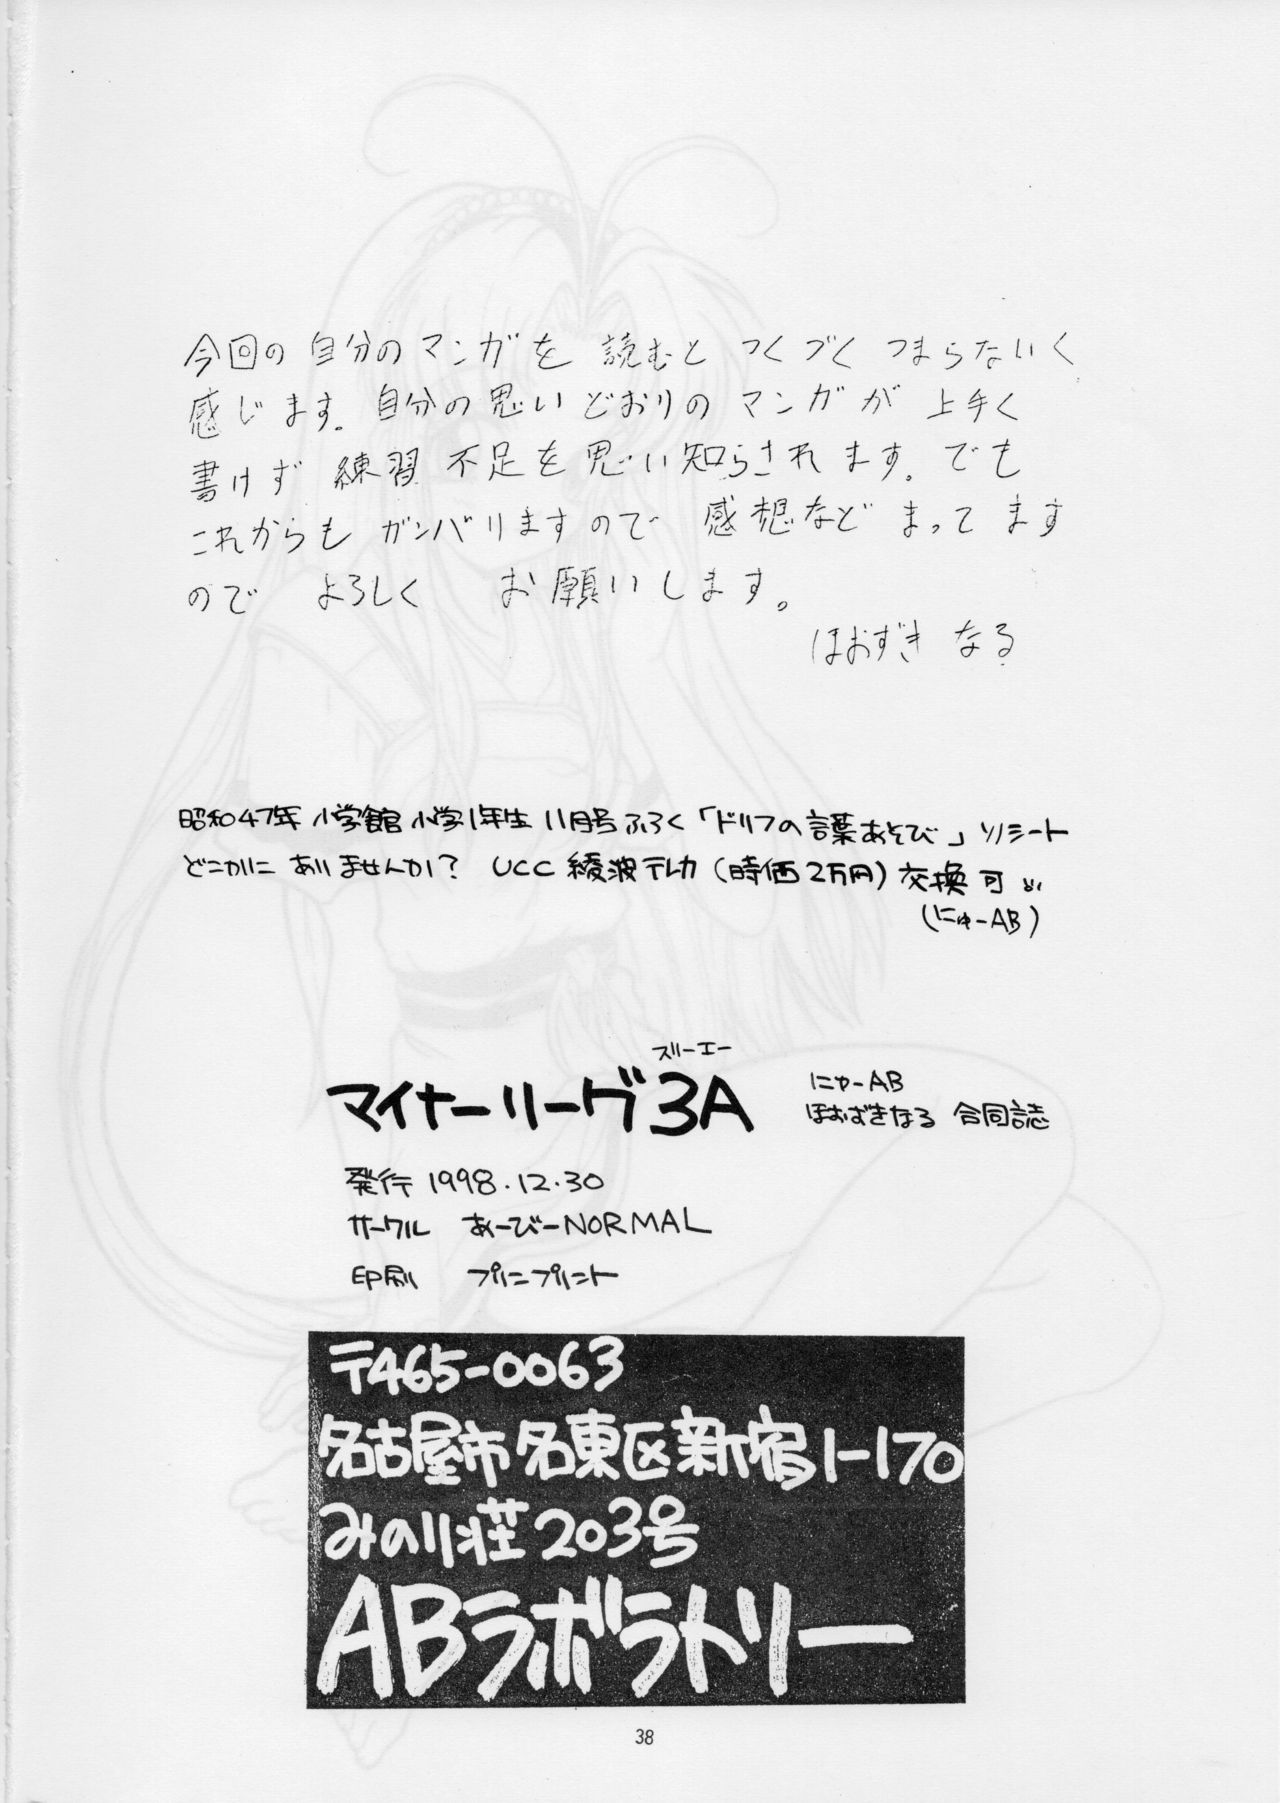 今回の自分のマンガを読むとつくづくつまらないく
感じます。自分の思いどおりのマンガが上手く
書けず練習不足を思い知らされます。でも
これからもガンバリますので感想などまってます
のでよろしくお願いします。
ほおずきなる
昭和47年小学館小学1年生11月号ふろく「ドリフの言葉あそび」ソノシート
どこかにありませんか？UCC綾波テレカ(時価2万円)交換可
(にゅーAB)
スリーエー
マイナーリーグ3A
にゅーAB
ほおずきなる 合同誌
発行 1998.12.30
サークル あーびーNORMAL
印刷 プリンプリント
〒465-0063
名古屋市名東区新宿1-170
みのり荘203号
ABラボラトリー
38